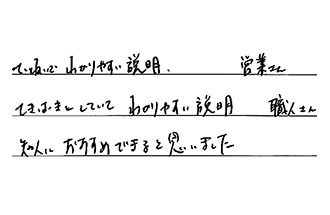 ていねいで わかりやすい説明. 営業さん
てきぱきとしていて わかりやすい説明 職人さん
知人に おすすめできると思いました